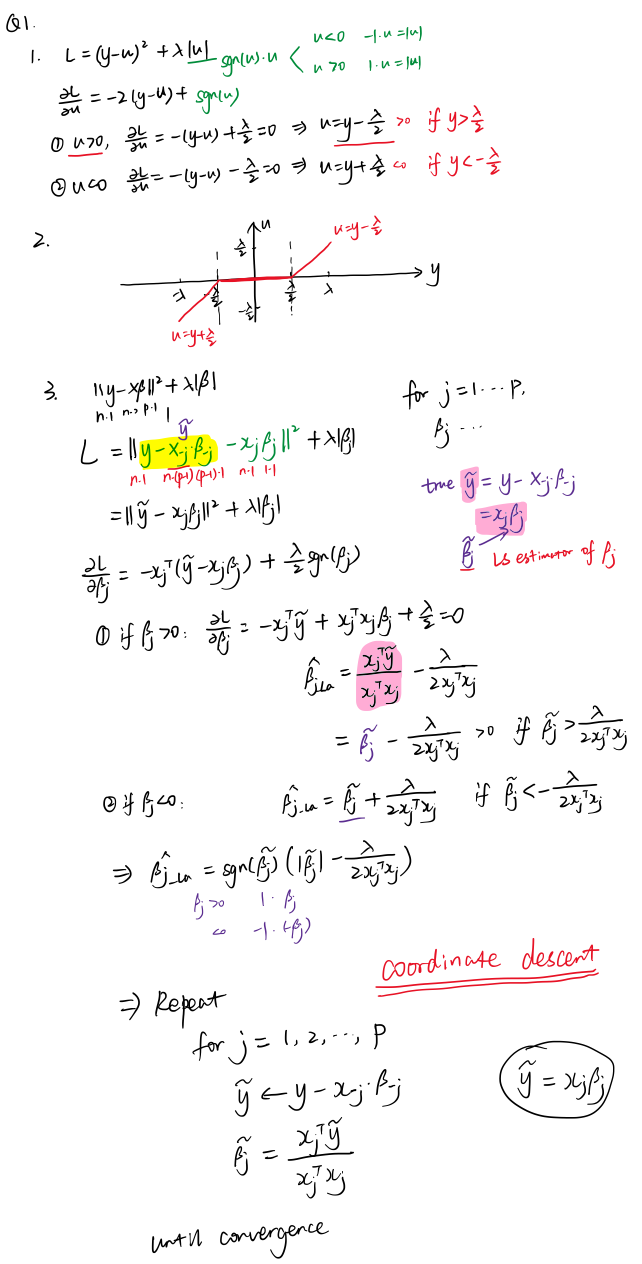 Q1.
1. L = (y-u)² + λ|u| sgn(u)·u < u<0 -1·u = |u|
u>0 1·u = |u|
∂L/∂u = -2(y-u) + sgn(u)
① u>0, ∂L/∂u = -(y-u) + λ/2 = 0 ⇒ u = y - λ/2 >0 if y > λ/2
② u<0 ∂L/∂u = -(y-u) - λ/2 = 0 ⇒ u = y + λ/2 <0 if y < -λ/2
2.
u
λ/2
u = y - λ/2
-λ -λ/2 λ/2 λ y
-λ/2
u = y + λ/2
3. ||y - xβ||² + λ|β|
n·1 n·p p·1 1
for j = 1 ... p,
βj ...
ỹ
L = ||y - x-j·β-j - xjβj||² + λ|βj|
n·1 n·(p-1) (p-1)·1 n·1 1·1
= ||ỹ - xjβj||² + λ|βj|
true ỹ = y - x-j·β-j
= xjβj
β̃j LS estimator of βj
∂L/∂βj = -xjᵀ(ỹ - xjβj) + λ/2 sgn(βj)
① if βj>0: ∂L/∂βj = -xjᵀỹ + xjᵀxjβj + λ/2 = 0
β̂j_la = xjᵀỹ/xjᵀxj - λ/2xjᵀxj
= β̃j - λ/2xjᵀxj >0 if β̃j > λ/2xjᵀxj
② if βj<0: β̂j_la = β̃j + λ/2xjᵀxj if β̃j < -λ/2xjᵀxj
⇒ β̂j_la = sgn(β̃j) (|β̃j| - λ/2xjᵀxj)
βj >0 1·βj
<0 -1·(-βj)
coordinate descent
⇒ Repeat
for j = 1, 2, ..., p
ỹ ← y - x-j·β-j
ỹ = xjβj
β̃j = xjᵀỹ/xjᵀxj
until convergence